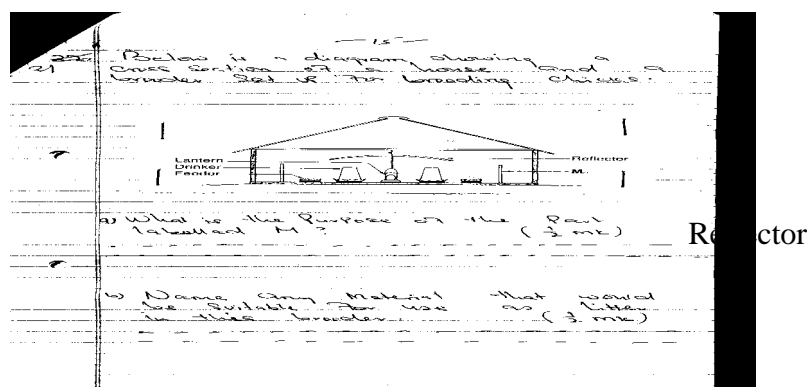 — 15 —
22. Below is a diagram showing a
21 cross section of a house and a
brooder set up for brooding chicks.
Lantern
Drinker
Reflector
M
a) What is the Purpose of the Part
labelled M ? (½ mk)
Re ctor
b) Name any Material that would
be suitable for use as litter
in this brooder. (½ mk)